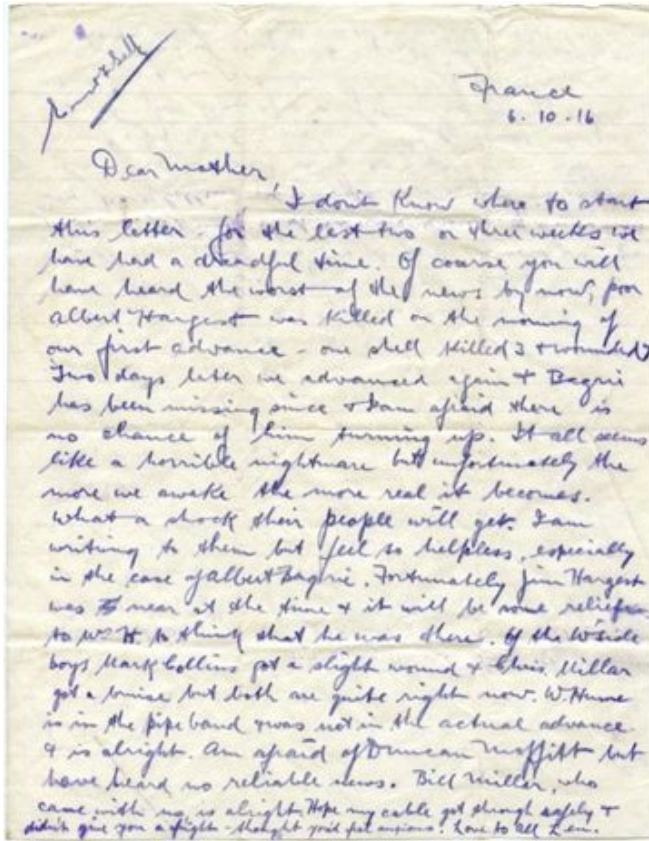 France
6.10.16
Dear Mother,
I don't know where to start
this letter - for the last two or three weeks we
have had a dreadful time. Of course you will
have heard the worst of the news by now, poor
Albert Hargest was killed on the morning of
our first advance - one shell killed 3 & wounded 7
Two days later we advanced again & Bagrie
has been missing since & I am afraid there is
no chance of him turning up. It all seems
like a horrible nightmare but unfortunately the
more we awake the more real it becomes.
What a shock their people will get. I am
writing to them but feel so helpless, especially
in the case of Albert Bagrie. Fortunately Jim Hargest
was near at the time & it will be some relief
to Mrs H. to think that he was there. Of the W'side
boys Mark Collins got a slight wound & Chris. Millar
got a bruise but both are quite right now. W. Hume
is in the pipe band & was not in the actual advance
& is alright. Am afraid of Duncan Moffitt but
have heard no reliable news. Bill Miller, who
came with us is alright. Hope my cable got through safely &
didn't give you a fright - thought you'd get anxious. Love to all Len.